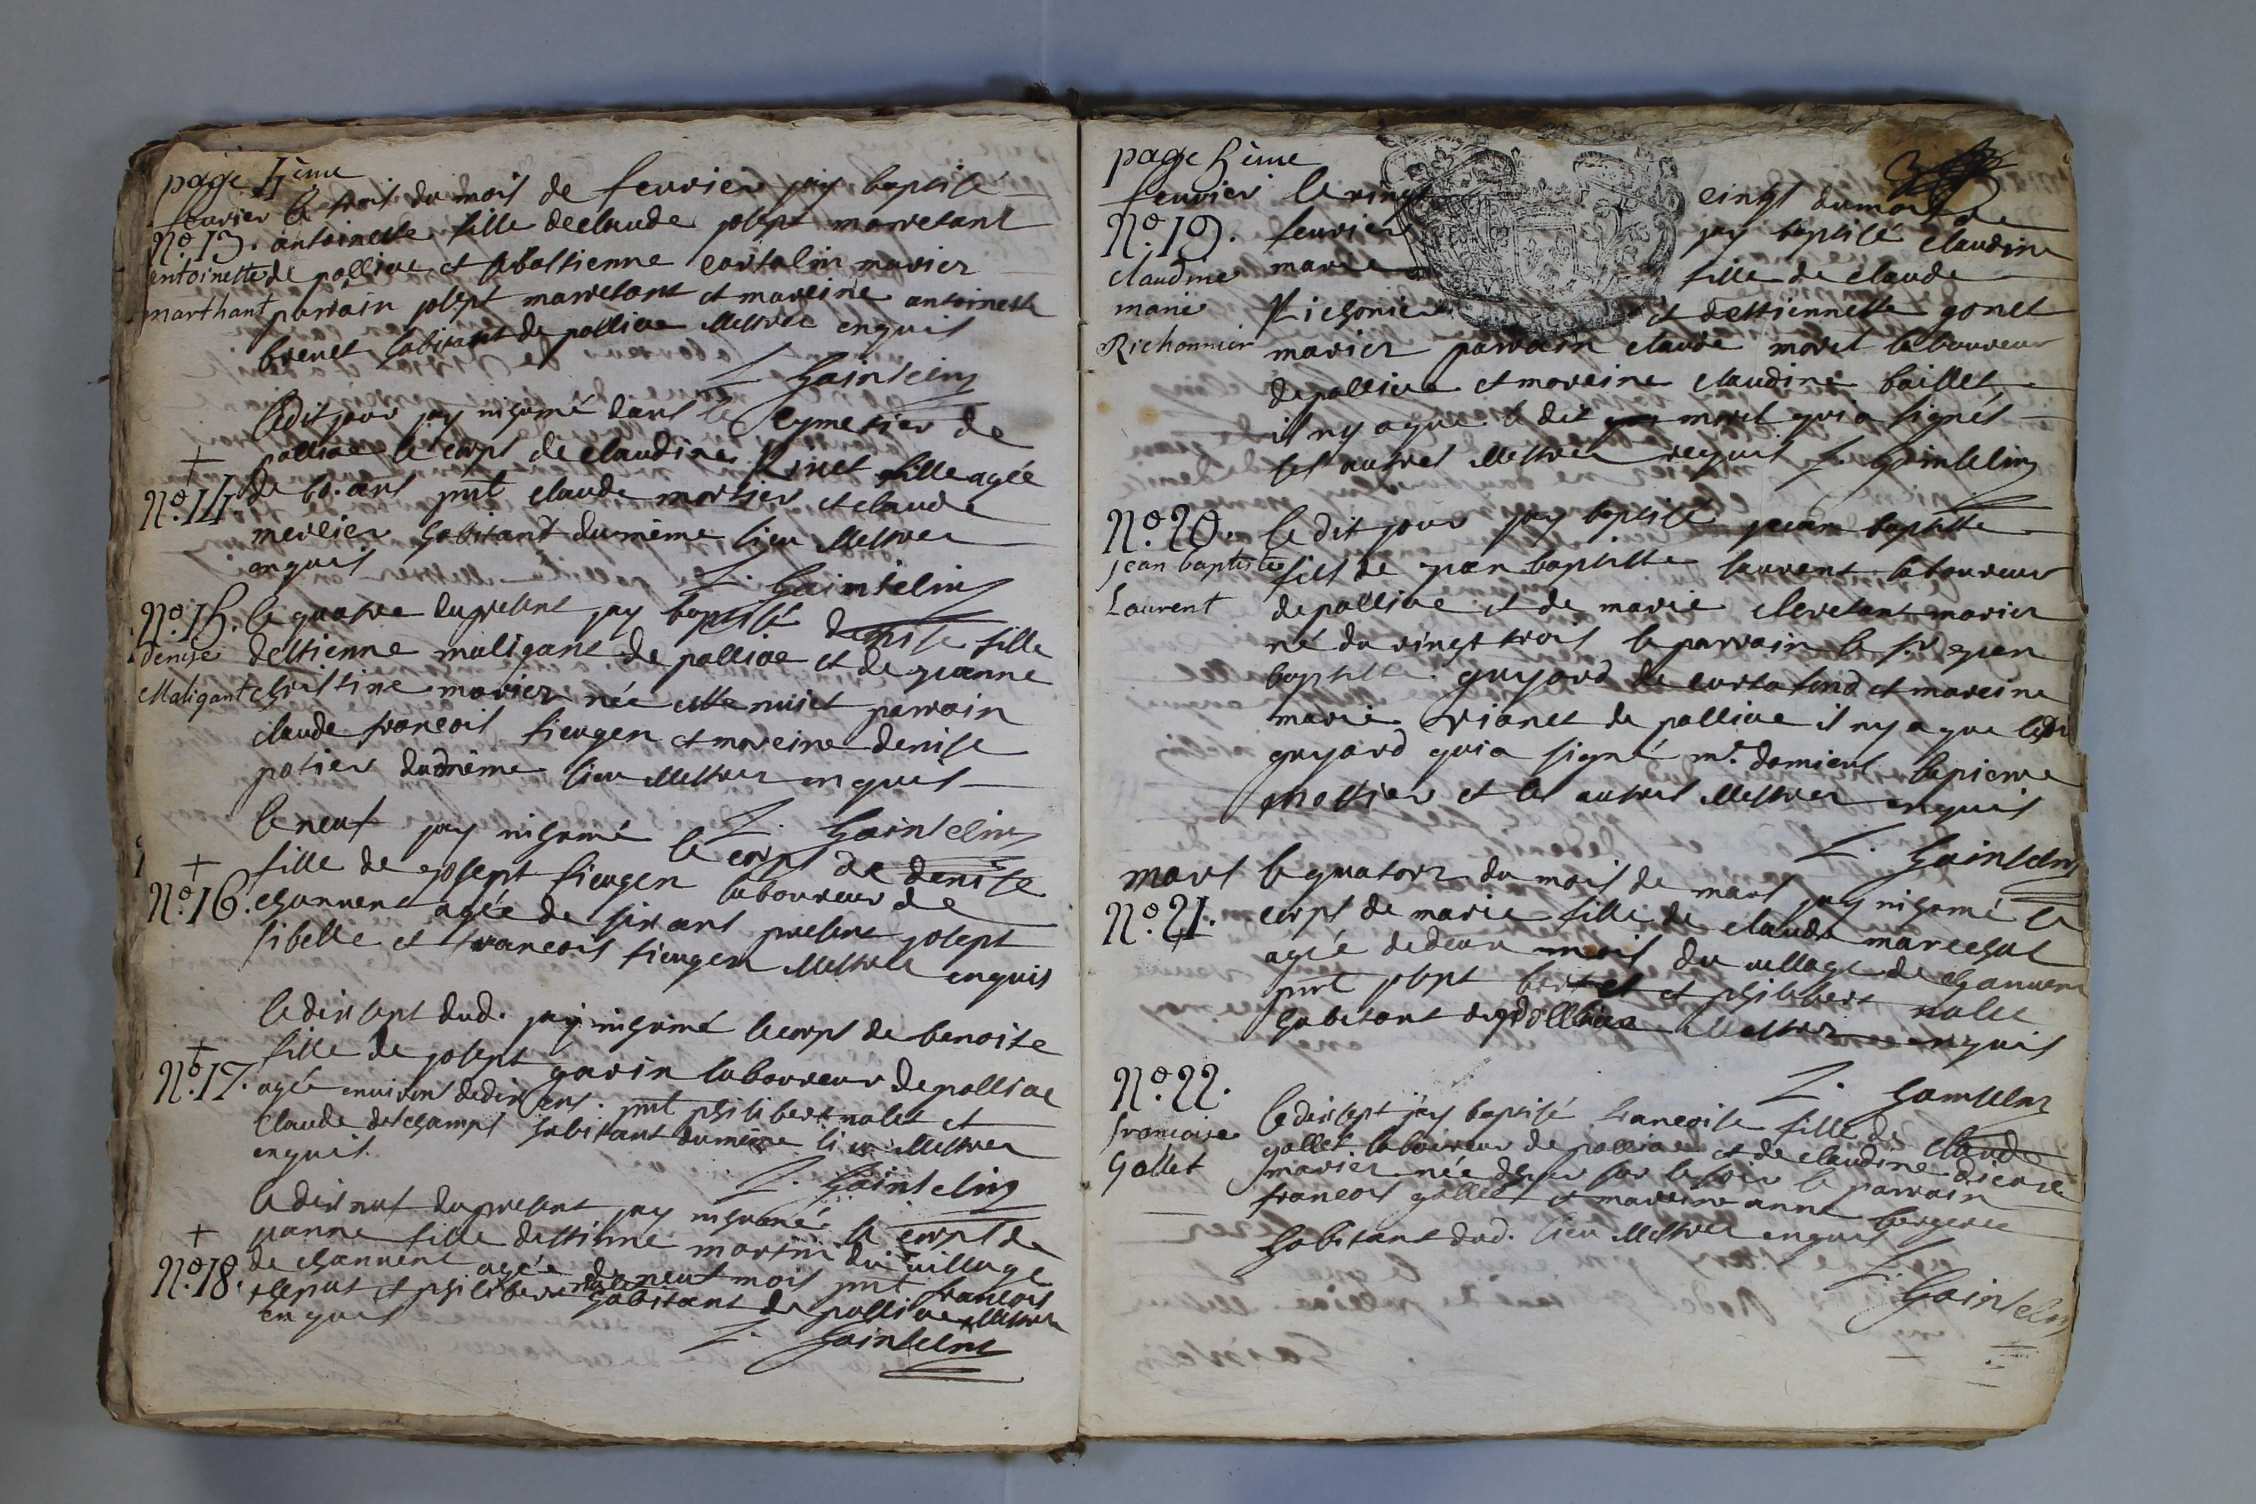 page 4ème
feuvier le trois du mois de feuvrier jay baptisé
N.o 13. antoinette fille de claude josept marretant
antoinette de polliae et sebastienne cortalin marier
marthant parrain josept marretant et mareine antoinette
brevet habitant de polliae illestrée enquis
L. Goinselin
ledit jour jay inhumé dans le cymetier de
polliae le corps de claudine Rivet fille agée
+
N.o 14. de 60. ans pnt claude mortier et claude
mercier habitant du même lieu illestrer
enquis
L. Goinselin
N.o 15. le quatre du present jay baptisé denise fille
denise destienne maligant de polliae et de jeanne
Maligant christine marier née cette nuict parrain
claude francois fieugen et mareine denise
potier dud même lieu illestrer enquis
L. Goinselin
le neuf jay inhumé le corps de denise
+ fille de josept fieugen laboureur de
N.o 16. channent agée de six ans present josept
sibelle et francois fieugen illestrée enquis
le dix sept dud. jay inhumé le corps de benoite
+ fille de josept gavin laboureur de polliae
N.o 17. agée environ de dix ans. pnt philibert nalet et
claude deschamps habitant du même lieu illestrer
enquis.
L. Goinselin
le dix neuf du present jay inhumé le corps de
+ jeanne fille destienne martin du village
N.o 18. de channent agée de neuf mois pnt francois
et philibert nalet habitant de polliae illestrer
enquis
L. Goinselin
page 5ème
feuvier le vingt cinqt du mois de
N.o 19. feuvrier jay baptisé claudine
claudine marie fille de claude
marie Richonier et destiennette gonet
Richonnier marier parrain claude moret laboureur
de polliae et mareine claudine baillet
il ny a que le dit moret qui a signés
les autres illestrer requis L. Goinselin
N.o 20. le dit jour jay baptisé jean baptiste
jean baptiste fils de jean baptiste laurent laboureur
Laurent de polliae et de marie clevetant marier
né du vingt trois le parrain le sr. jean
baptiste guyard de curtafond et mareine
marie vianet de polliae il ny a que ledit
guyard qui a signé m.e damiens lapierre
et les autres illestrer enquis
L. Goinselin
mars le quatorz du mois de mars jay inhumé le
N.o 21. corps de marie fille de claude marechal
agée de deux mois du village de channent
pnt josept et philibert nalet
habitant de polliae illestrer enquis
L. Goinselin
N.o 22.
le dix sept jay baptisé francoise fille de claude
francoise gallet laboureur de polliae et de claudine
Gallet marier née dhyer sur le soir le parrain
francois gallet et mareine anne bergere
habitant dud. lieu illestrer enquis
L. Goinselin